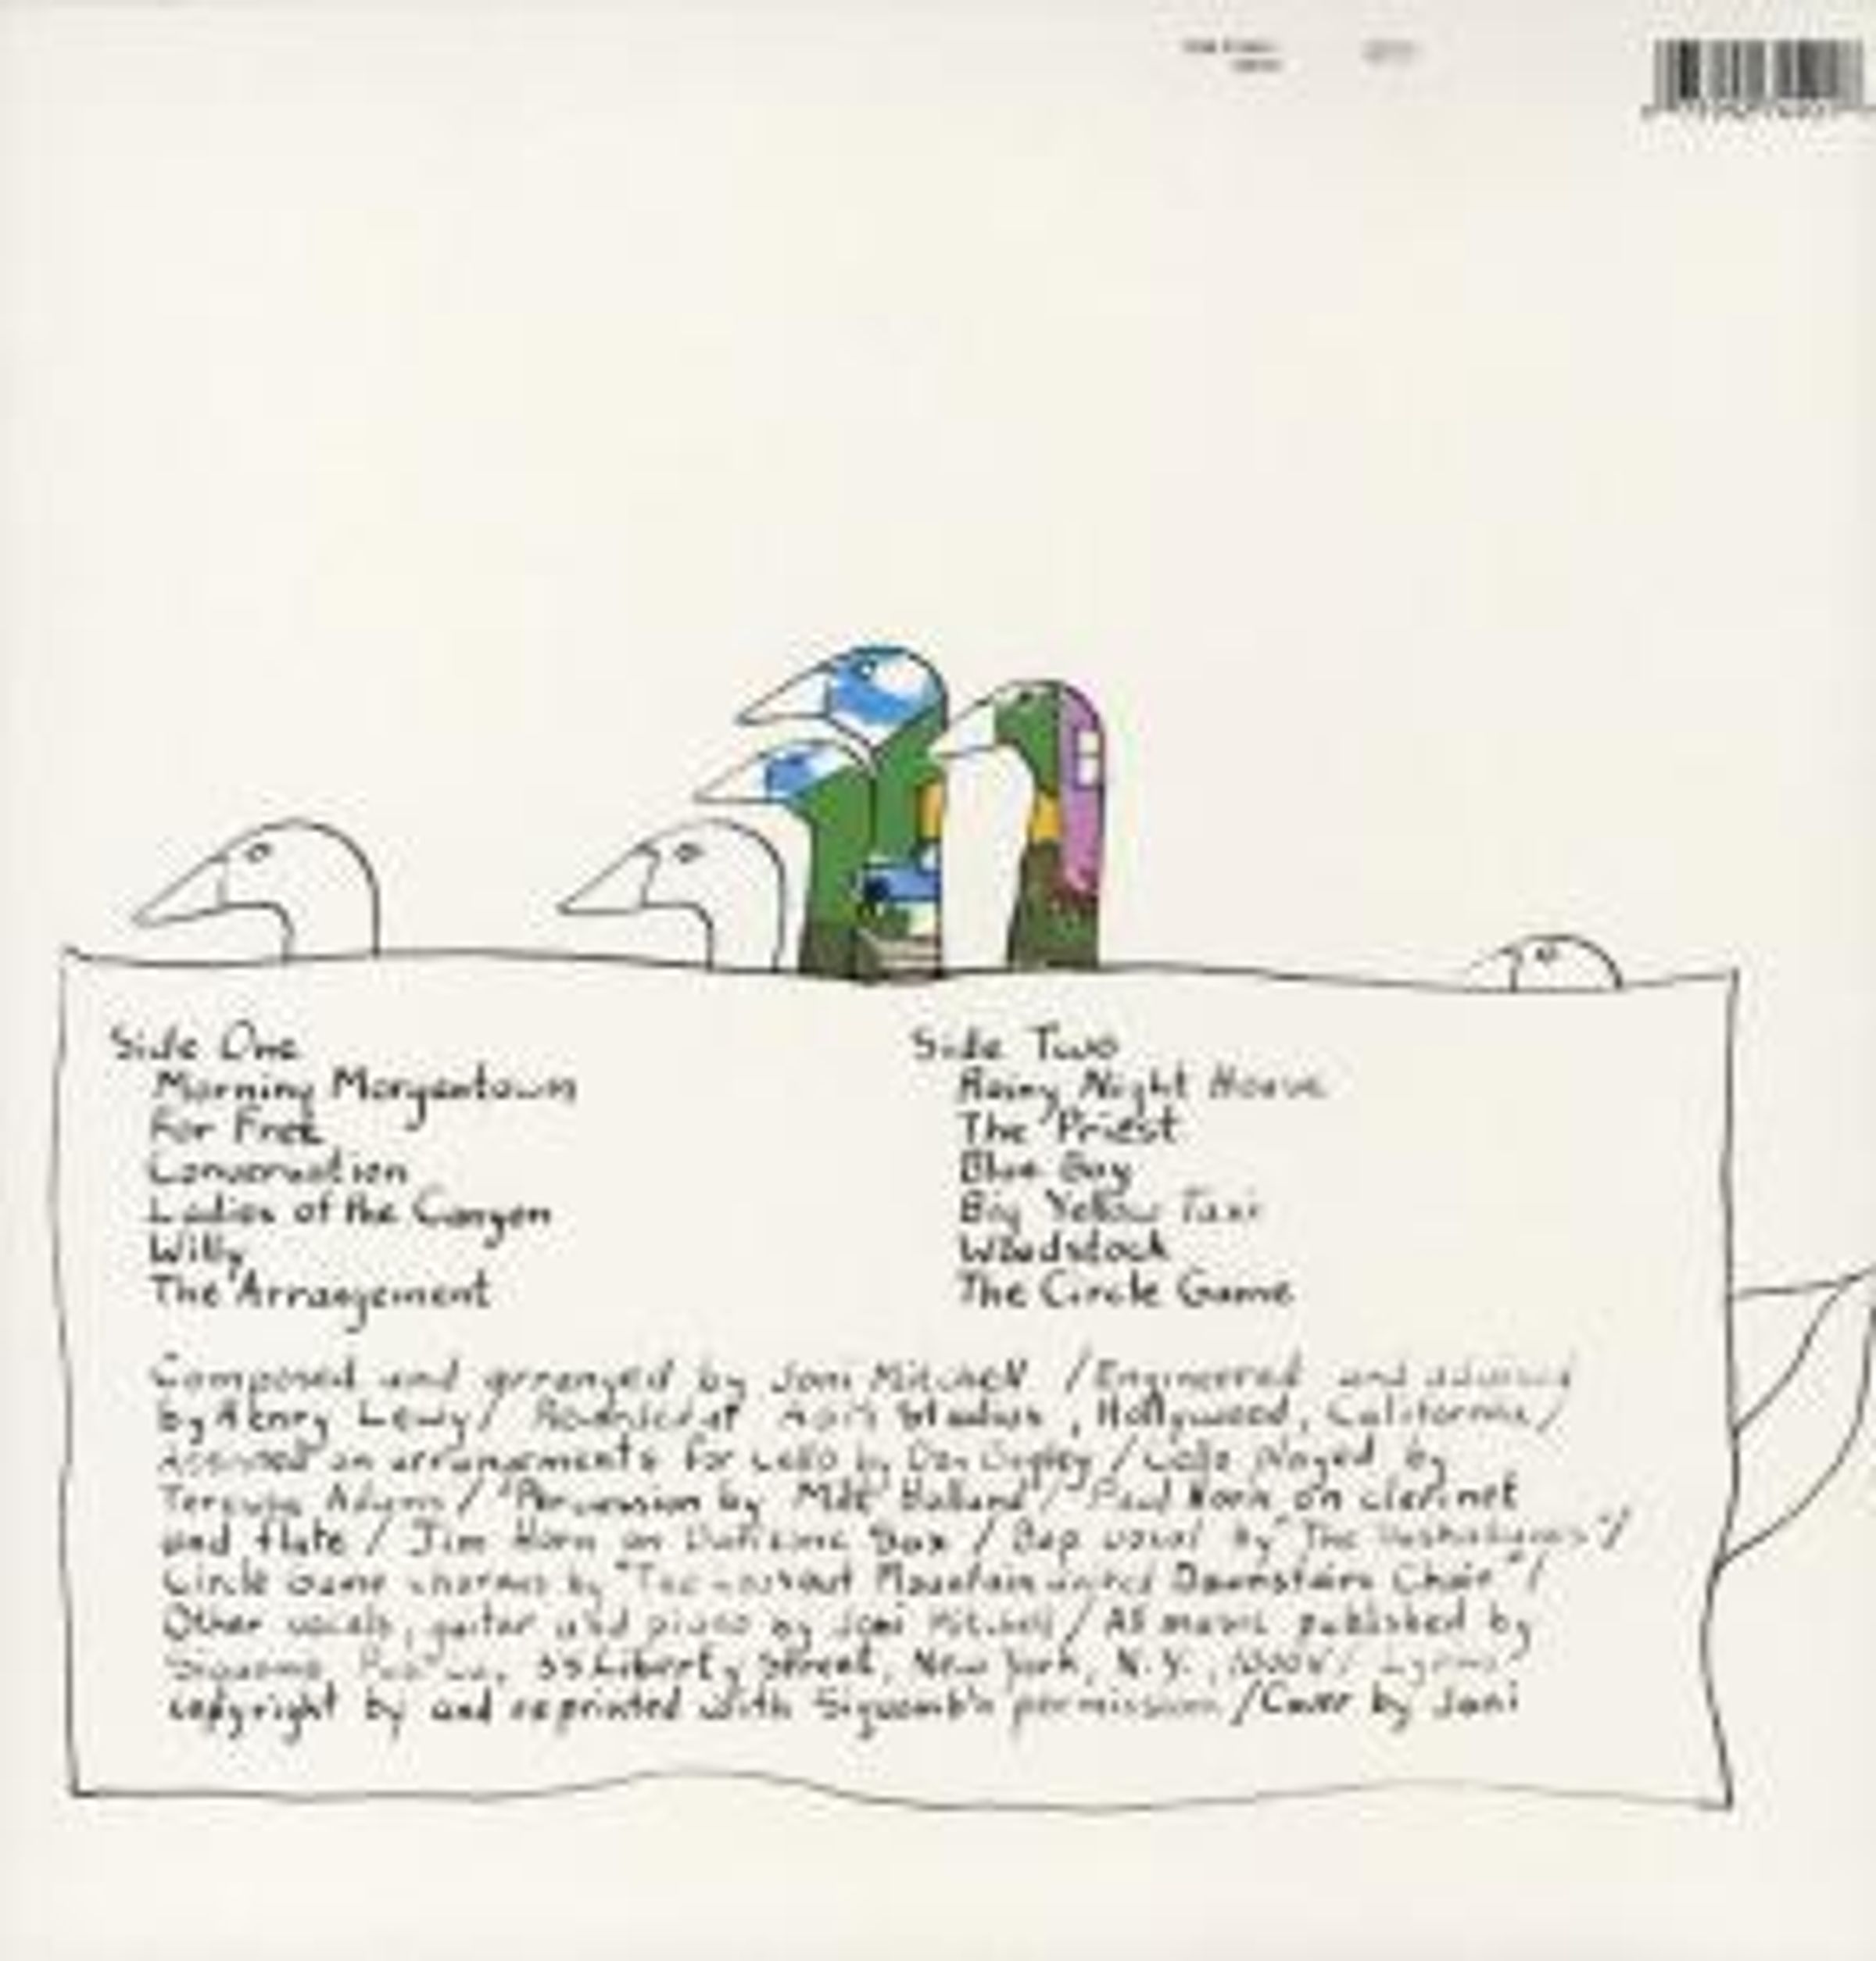 Side One
Morning Morgantown
For Free
Conversation
Ladies of the Canyon
Willy
The Arrangement
Side Two
Rainy Night House
The Priest
Blue Boy
Big Yellow Taxi
Woodstock
The Circle Game
Composed and arranged by Joni Mitchell / Engineered and advised
by Henry Lewy / A&M Studios, Hollywood, California /
on arrangements for cello by Don Bagley / Cello played by
Teressa Adams / Percussion by Milt Holland / Paul Horn on clarinet
and flute / Jim Horn on Baritone Sax / Bop vocal by "The
Circle Game chorus by "The Lookout Mountain United Downstairs Choir" /
Other vocals, guitar and piano by Joni Mitchell / All music published by
Siquomb 55 Liberty Street, New York, N.Y., Lyrics
copyright by and reprinted with Siquomb's permission / Cover by Joni